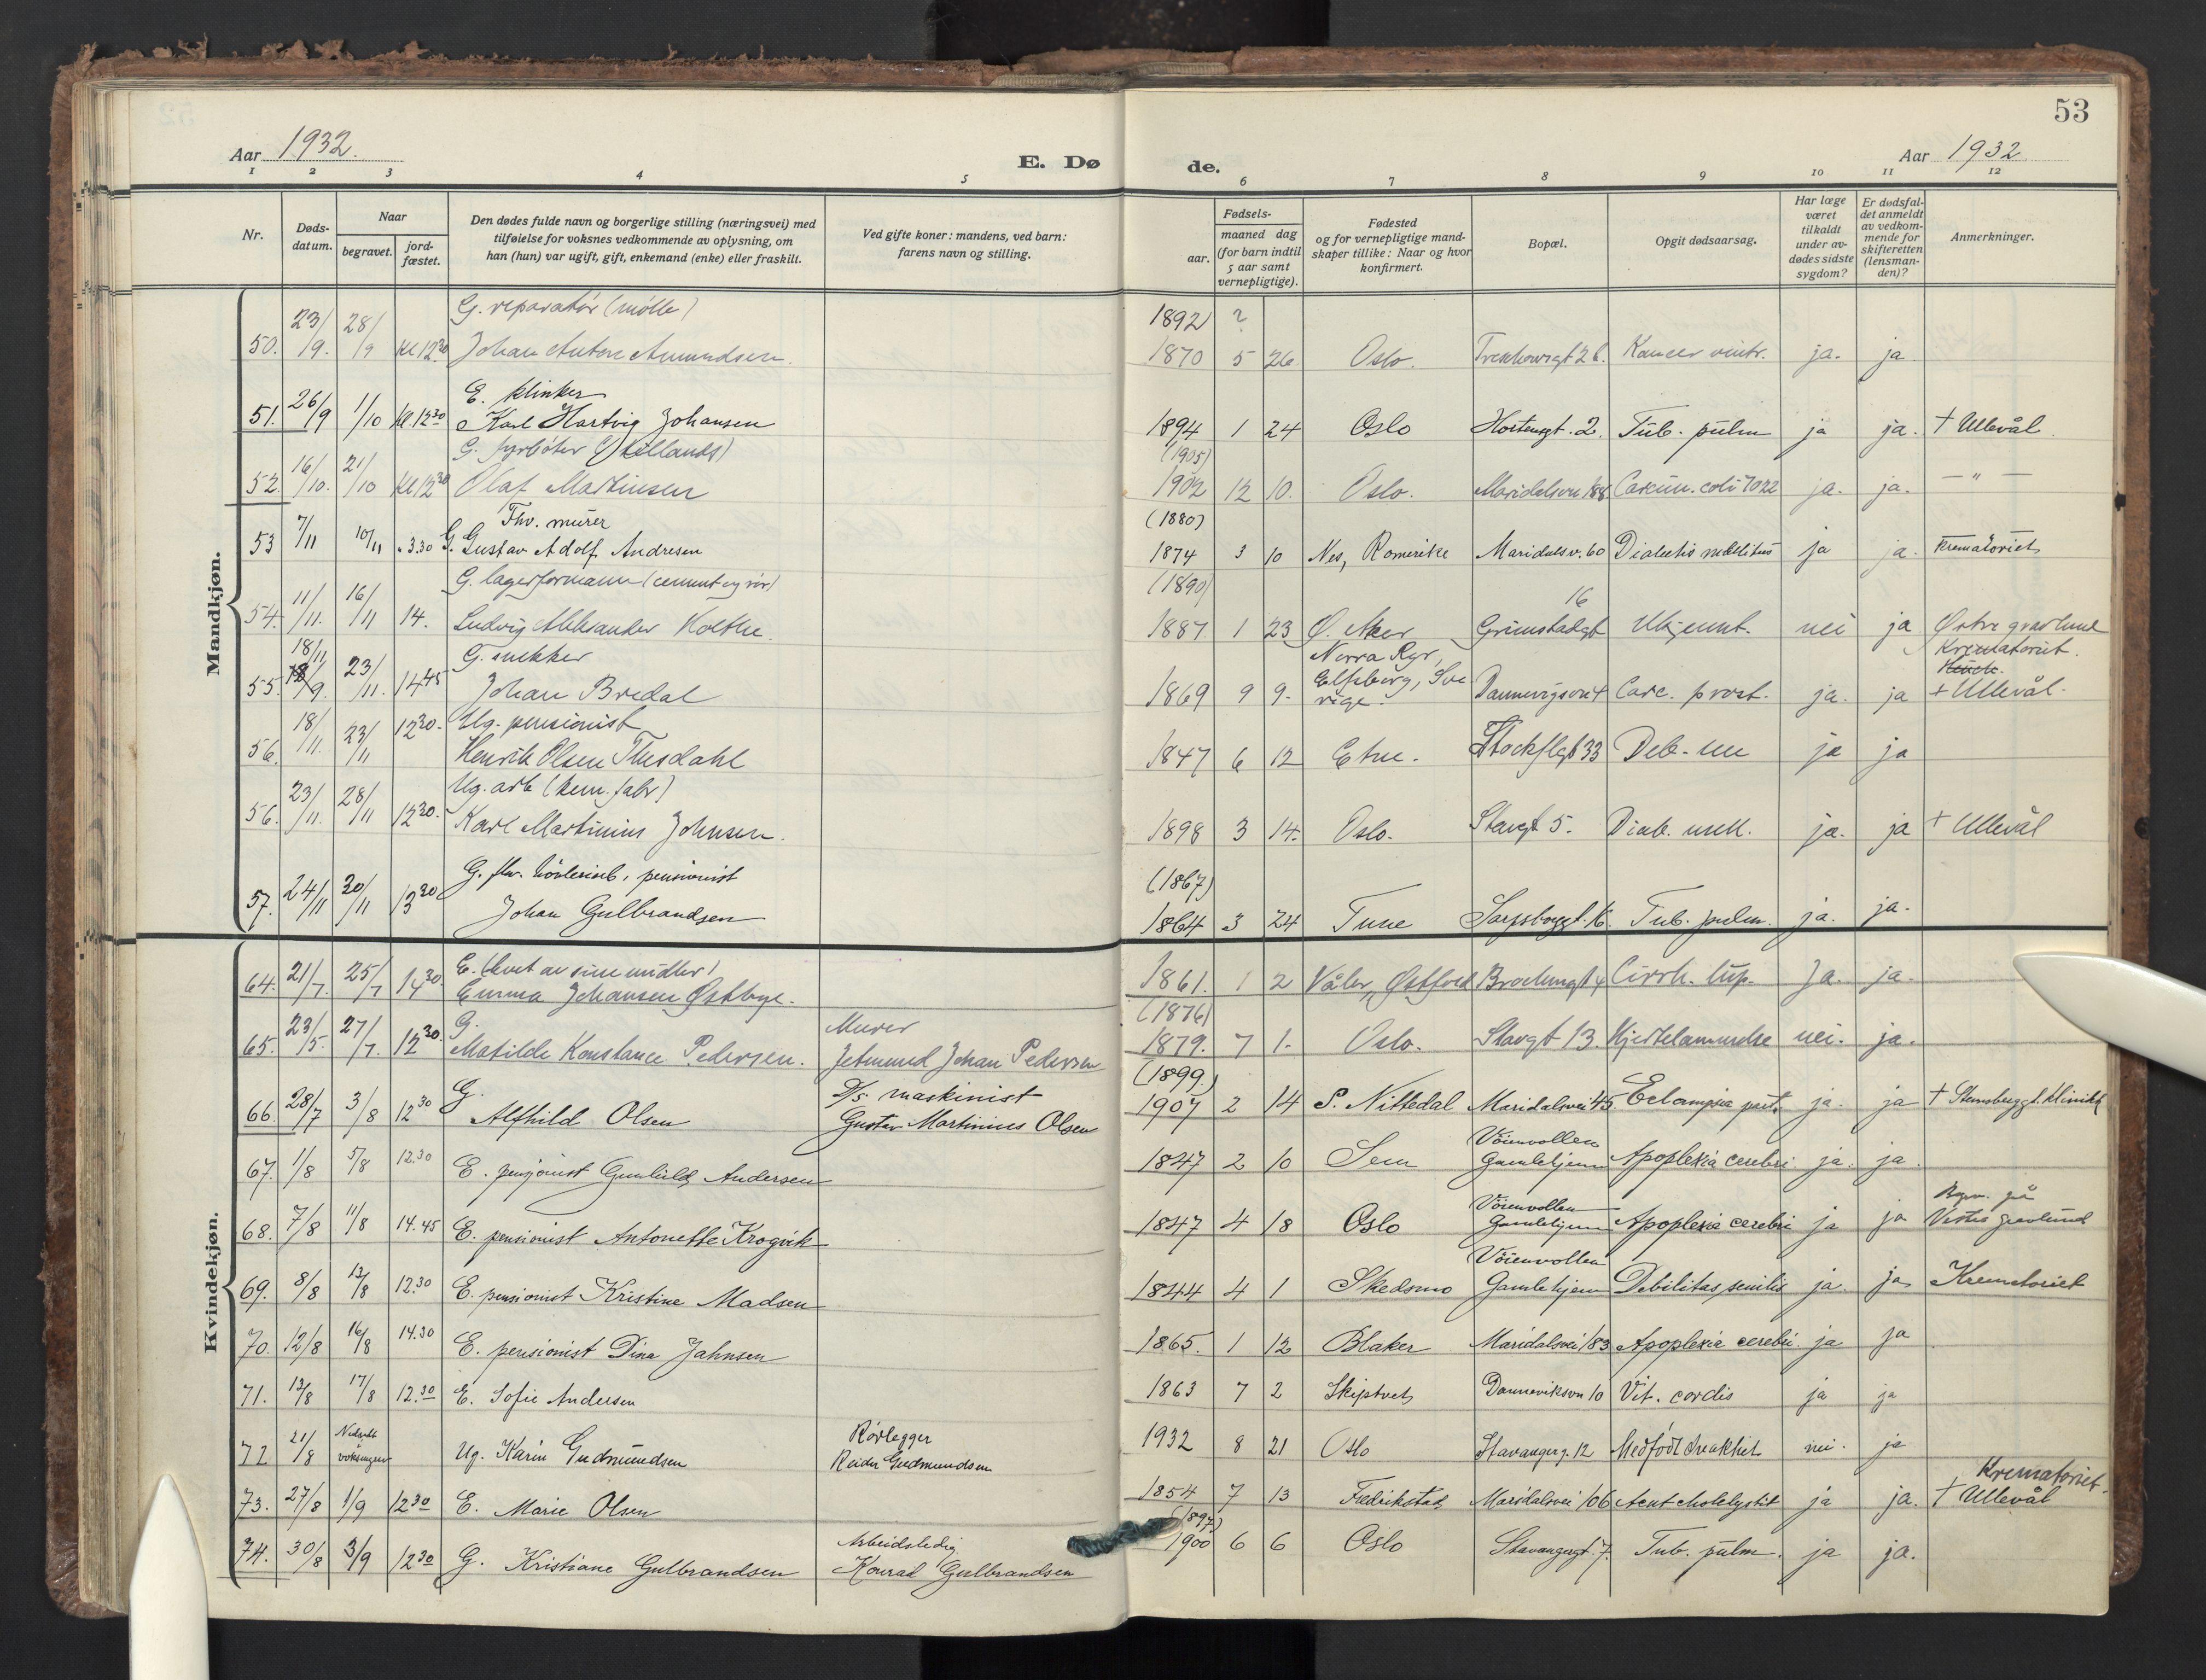 53
Aar 1932.
E. Døde.
Aar 1932
1 2 3 4 5 6 7 8 9 10 11 12
Nr.
Døds-
datum.
Naar
begravet.
jord-
fæstet.
Den dødes fulde navn og borgerlige stilling (næringsvei) med
tilføielse for voksnes vedkommende av oplysning, om
han (hun) var ugift, gift, enkemand (enke) eller fraskilt.
Ved gifte koner: mandens, ved barn:
farens navn og stilling.
Fødsels-
aar.
maaned dag
(for barn indtil
5 aar samt
vernepligtige).
Fødested
og for vernepligtige mand-
skaper tillike: Naar og hvor
konfirmert.
Bopæl.
Opgit dødsaarsag.
Har læge
været
tilkaldt
under av-
dødes sidste
sygdom?
Er dødsfal-
det anmeldt
av vedkom-
mende for
skifteretten
(lensman-
den)?
Anmerkninger.
Mandkjøn.
G. reparatør (mølle) 1892 ?
50. 23/9. 28/9 kl 12 30 Johan Anton Amundsen. 1870 5 26 Oslo. ja. ja
E. klinker
51. 26/9 1/10 kl. 12 30 Karl Hartvig Johansen 1894 1 24 Oslo Hortensgt. 2. Tub. pulm ja ja. + Ullevål.
G. fyrbøter (1905)
52. 16/10. 21/10 kl 12 30 Olaf Martinsen 1902 12 10. Oslo. ja. ja. — " —
Fhv. murer (1880)
53 7/11 10/11 " 3.30 G. Gustav Adolf Andresen 1874 3 10 Nes, Romerike Maridalsv. 60 ja ja. Krematoriet
G. lagerformann (cement og rør) (1890) 16
54. 11/11. 16/11 14. Ludvig Aleksander Kolthe. 1887 1 23 Ø. Aker Grimstadgt Ukjennt. nei ja Østre gravlund
18/11 G. snekker Norra Ryr, Krematoriet.
55. 23/11. 14 45 Johan Bredal 1869 9 9. Elfsborg, Sve
rige. Carc. prost. ja. ja + Ullevål.
18/11. 12 30. Ug. pensionist
56. 23/11 Henrik Olsen 1847 6 12 33 Deb. sen ja ja
Ug. arb (kem. fabr)
56. 23/11. 28/11 12 30. Karl Martinius Johnsen. 1898 3 14. Oslo. Stavgt 5. Diab. mell. ja. ja + Ullevål
G. fhv. pensionist (1867)
57. 24/11 30/11 13 30 Johan Gulbrandsen 1864 3 24 Tune Sarpsborggt. 16. Tub. pulm. ja. ja.
Kvindekjøn.
E. (levet av sine midler)
64. 21/7. 25/7 14 30 Emma Johansen Østbye. 1861. 1 2 Våler, Østfold Cirrh. hep. Ja. ja.
G. Murer (1876)
65. 23/5. 27/7. 12 30. Matilde Konstance Pedersen. Jetmund Johan Pedersen 1879. 7 1. Oslo. Stavgt 13. Hjertelammelse nei. ja.
G. D/s maskinist (1899.)
66. 28/7 3/8 12 30 Alfhild Olsen Gustav Martinius Olsen 1907 2 14 S. Nittedal Maridalsvei 45. Eclampsia part. ja. ja + Stensberggt. klinikk
67. 1/8 5/8 12.30 E. pensjonist Gunhild Andersen 1847 2 10 Sem Vöienvollen
Gamlehjem Apoplexia cerebri ja. ja.
68. 7/8 11/8 14.45 E. pensionist Antonette Krogvik 1847 4 18 Oslo Vöienvollen
Gamlehjem Apoplexia cerebri ja ja på
Vestre gravlund
69. 8/8 13/8 12.30 E. pensionist Kristine Madsen 1844 4 1 Skedsmo Vöienvollen
Gamlehjem Debilitas senilis ja. ja Krematoriet
70. 12/8 16/8 14.30 E. pensionist Dina Jahnsen 1865. 1 12 Blaker Maridalsvei 183 Apoplexia cerebri. ja ja
71. 13/8 17/8 12.30 E. Sofie Andersen 1863 7 2 Skiptvet Danneviksvn 10 Vit. cordis ja ja
72 21/8 Nedsatt Ug. Karin Gudmundsen Rørlegger
Reidar Gudmundsen 1932 8 21 Oslo Stavangerg. 12 Medfödt svakhet nei. ja
73. 27/8 1/9 12 30 E. Marie Olsen 1854 7 13 Fredrikstad Maridalsvei 106 Acut cholecystit ja ja. Krematoriet.
+ Ullevål
74. 30/8 3/9 12 30 G. Kristiane Gulbrandsen Arbeidsledig
Konrad Gulbrandsen (1897)
1900 6 6 Oslo Stavangergt. 7. Tub. pulm. ja ja.